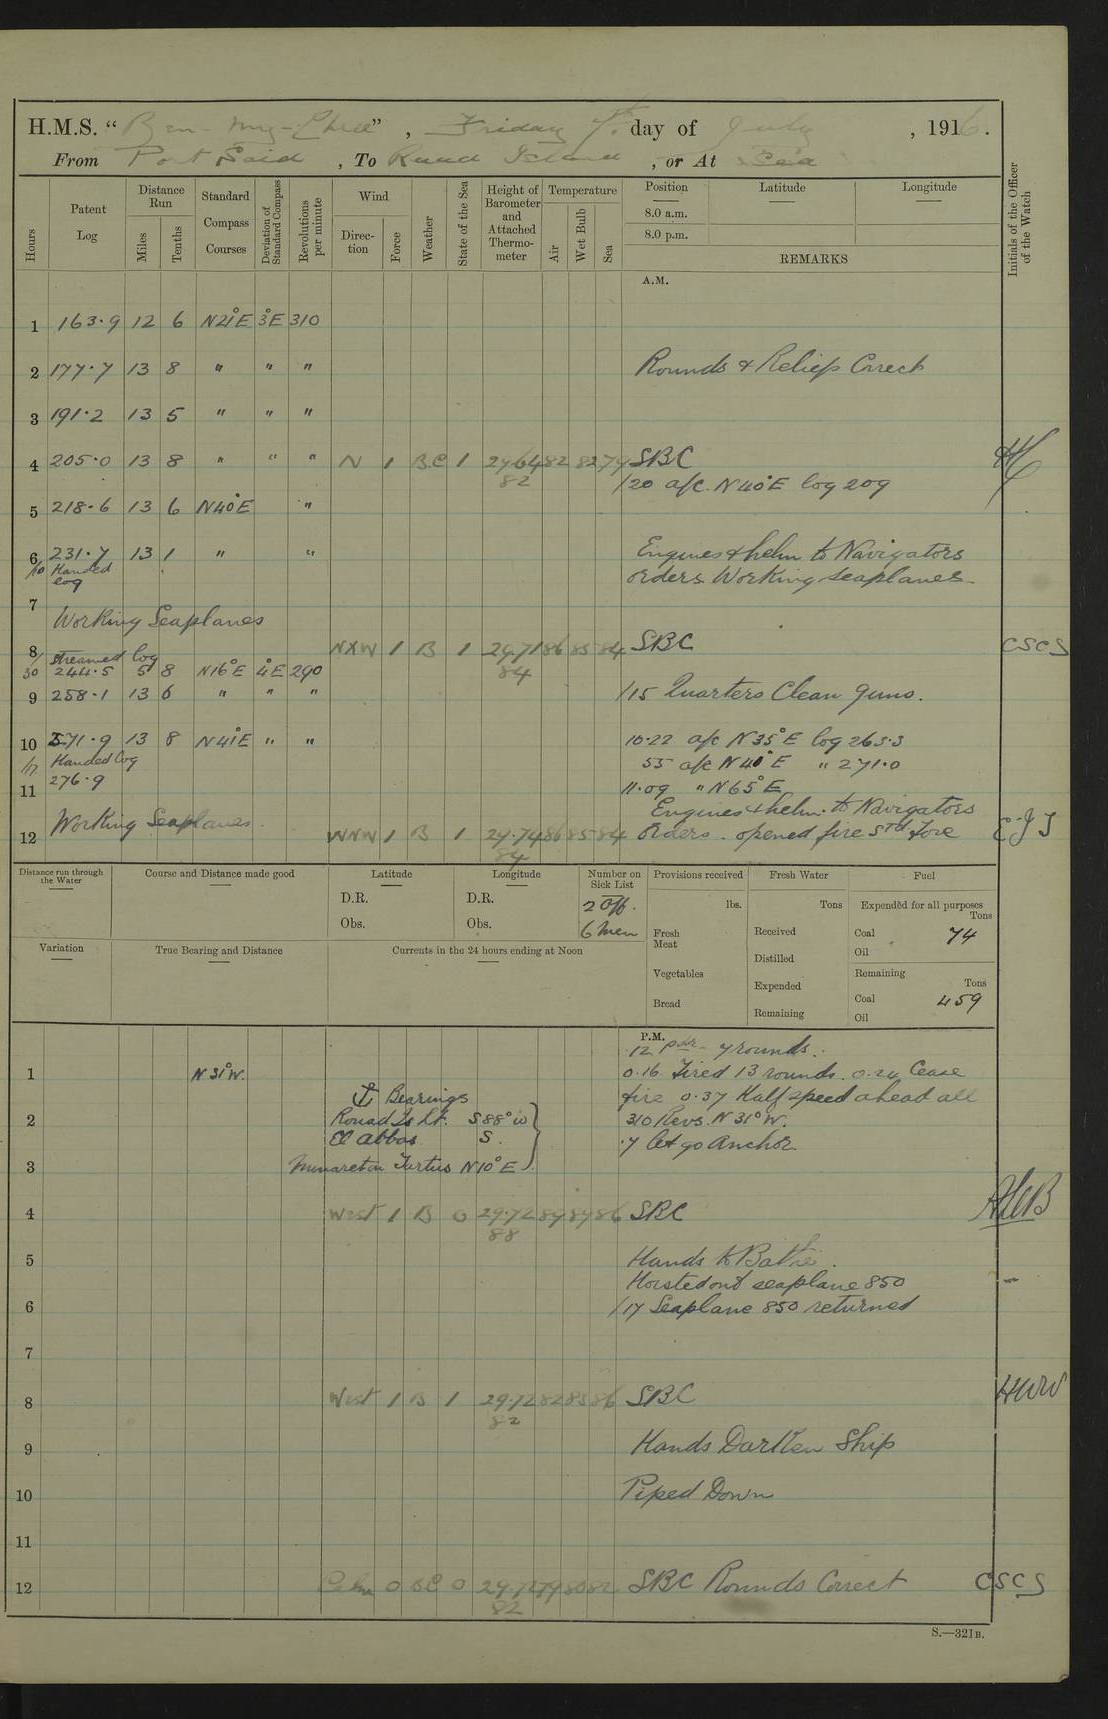 H.M.S. “Ben-my-Chree”, Friday 7th day of July, 1916.
From Port Said, To Ruad Island, or At Sea
Hours
Patent Log
Distance Run
Miles
Tenths
Standard Compass Courses
Deviation of Standard Compass
Revolutions per minute
Wind
Direction
Force
Weather
State of the Sea
Height of Barometer and Attached Thermometer
Temperature
Air
Wet Bulb
Sea
Position
Latitude
Longitude
8.0 a.m.
8.0 p.m.
REMARKS
Initials of the Officer of the Watch
A.M.
1 163.9 12 6 N21°E 3°E 310
2 177.7 13 8 " " " Rounds & Reliefs Correct
3 191.2 13 5 " " "
4 205.0 13 8 " " " N 1 BC 1 29.64 82 82 79 SBC
82
/20 a/c. N40°E log 209
5 218.6 13 6 N40°E "
6 231.7 13 1 " " Engines & helm to Navigators
/10 Handed log
orders Working seaplanes
7
Working Seaplanes
8 NXW 1 B 1 29.71 86 85 84 SBC CSCS
84
/30 streamed log
244.5 5 8 N16°E 4°E 290
9 258.1 13 6 " " " /15 Quarters Clean guns.
10 271.9 13 8 N41°E " " 10.22 a/c N35°E log 263.3
/17 Handed log
55 a/c N40°E " 271.0
11 276.9 11.09 " N65°E
Engines & helm to Navigators
Working Seaplanes
12 WNW 1 B 1 29.74 86 85 84 Orders. opened fire Std Fore EJT
84
Distance run through the Water
Course and Distance made good
Latitude
Longitude
Number on Sick List
Provisions received
Fresh Water
Fuel
D.R. D.R. 2 Off.
Obs. Obs. 6 Men
lbs.
Tons
Expended for all purposes
Tons
Fresh Meat
Received
Coal 74
Oil
Variation
True Bearing and Distance
Currents in the 24 hours ending at Noon
Distilled
Vegetables
Remaining
Tons
Expended
Bread
Coal 459
Remaining
Oil
P.M.
12 pdr 7 rounds.
1 N31°W. 0.16 Fired 13 rounds. 0.24 Cease
⚓ Bearings fire 0.37 Half speed ahead all
2 Rouad Is Lt. S88°W 310 Revs. N31°W.
El Abbas S. .7 let go Anchor
3 Minaret in Tartus N10°E
4 West 1 B 0 29.72 89 89 86 SBC
88
5 Hands to Bathe.
Hoisted out seaplane 850
6 /17 Seaplane 850 returned
7
8 West 1 B 1 29.72 82 83 86 SBC HWW
82
9 Hands Darken Ship
10 Piped Down
11
12 Calm 0 BC 0 29.72 79 80 82 SBC Rounds Correct CSCS
82
S.—321B.